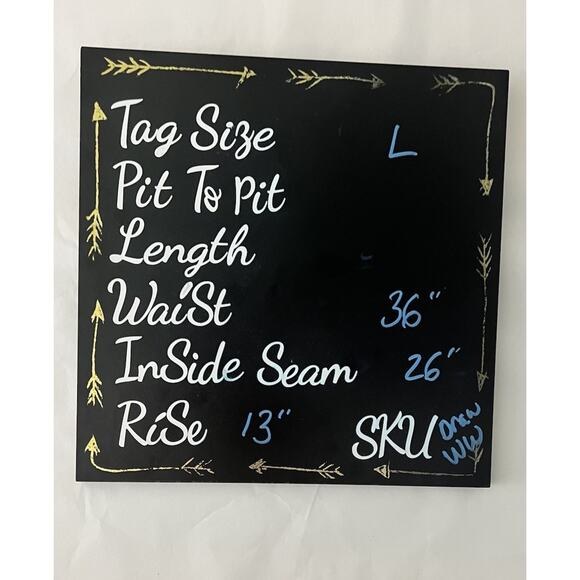 Tag Size L
Pit To Pit
Length
Waist 36"
InSide Seam 26"
RiSe 13" SKU
WW